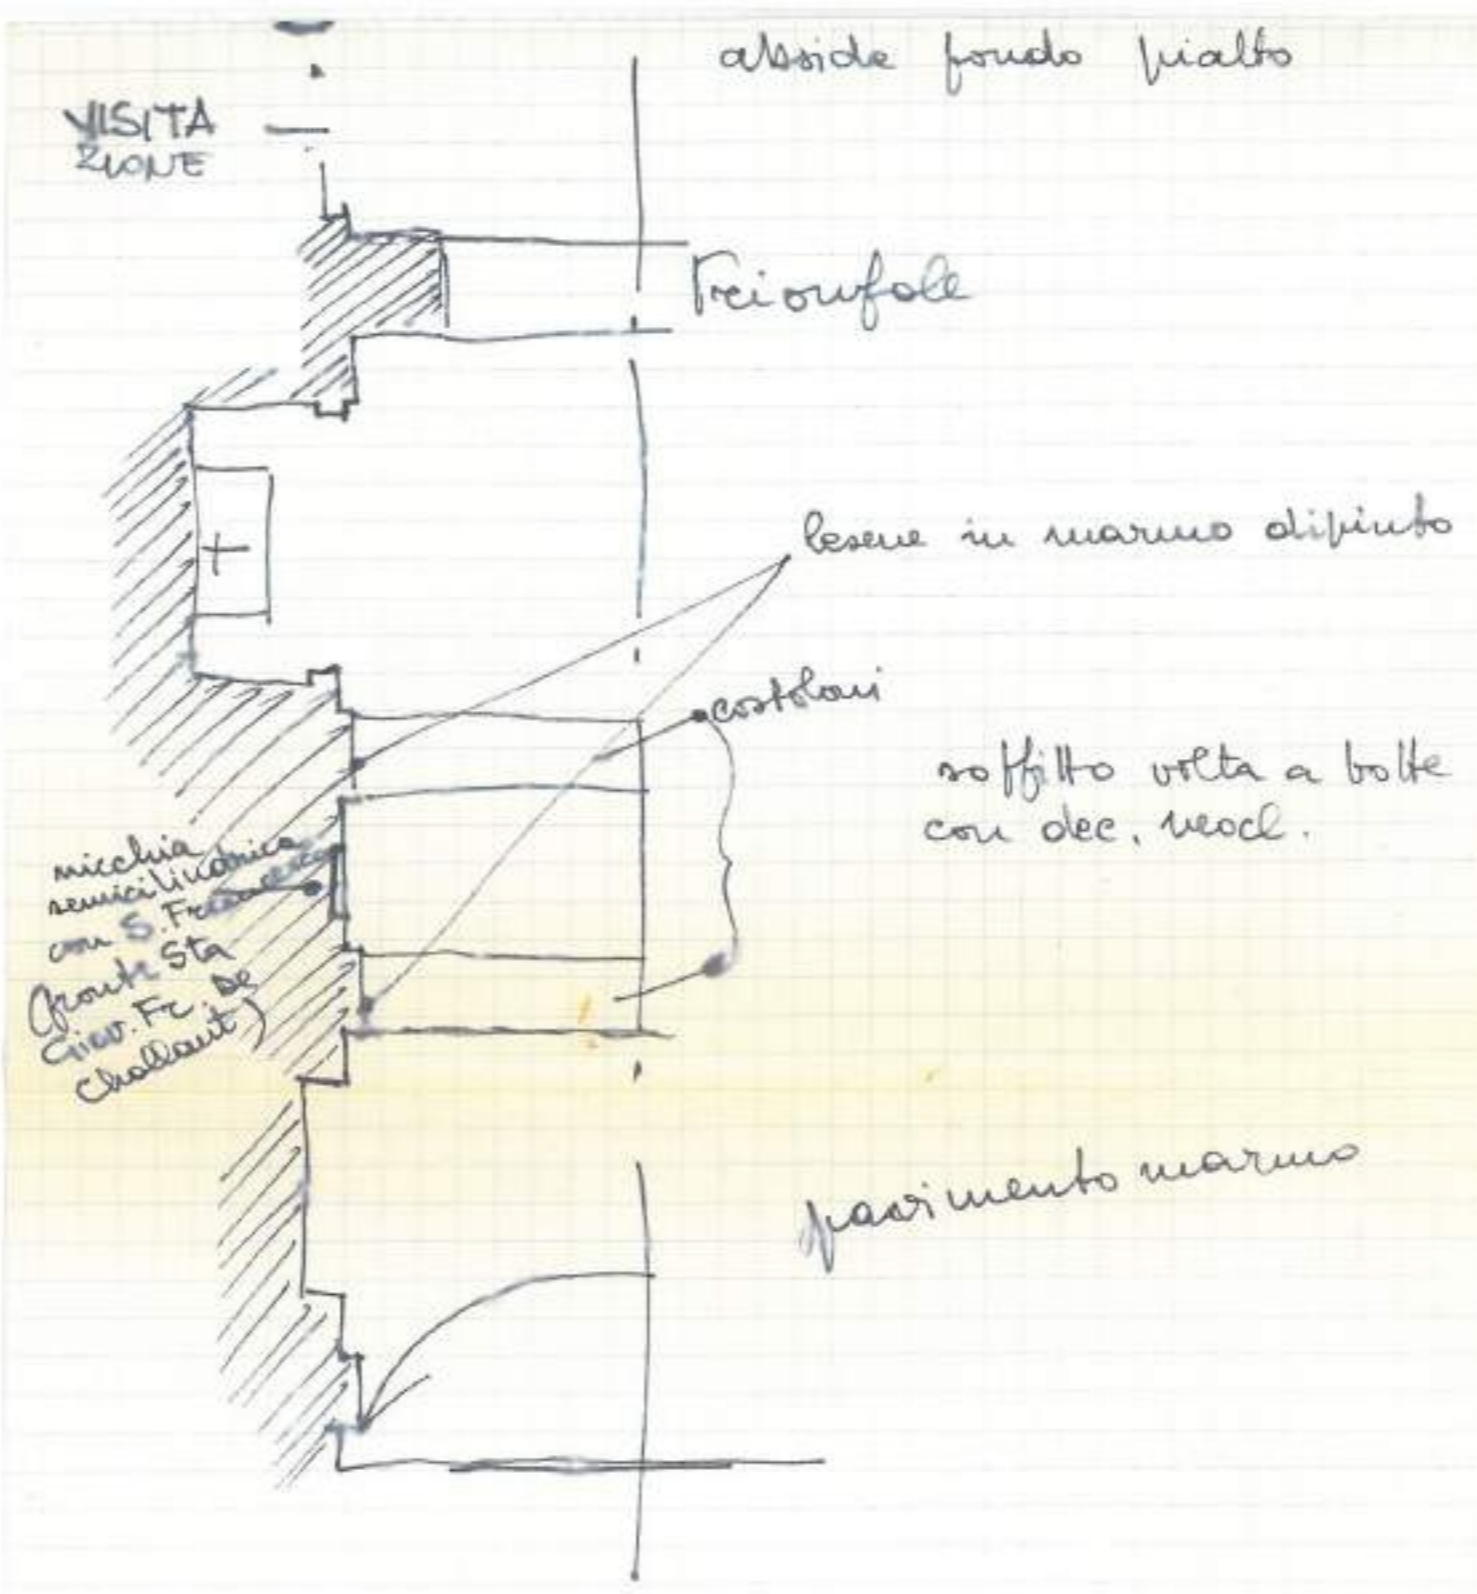 abside fondo piatto
VISITA
ZIONE
Trionfale
lesene in marmo dipinto
costoloni
soffitto volta a botte
con dec. neocl.
nicchia
semicilindrica
con S. Francesco
(fronte Sta
Giov. Fr. de
Challant)
pavimento marmo